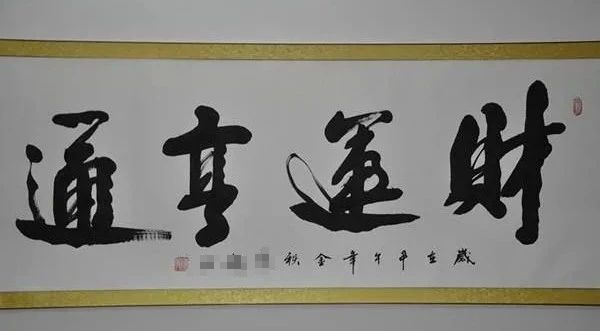 財運亨通
歲在甲午年金秋